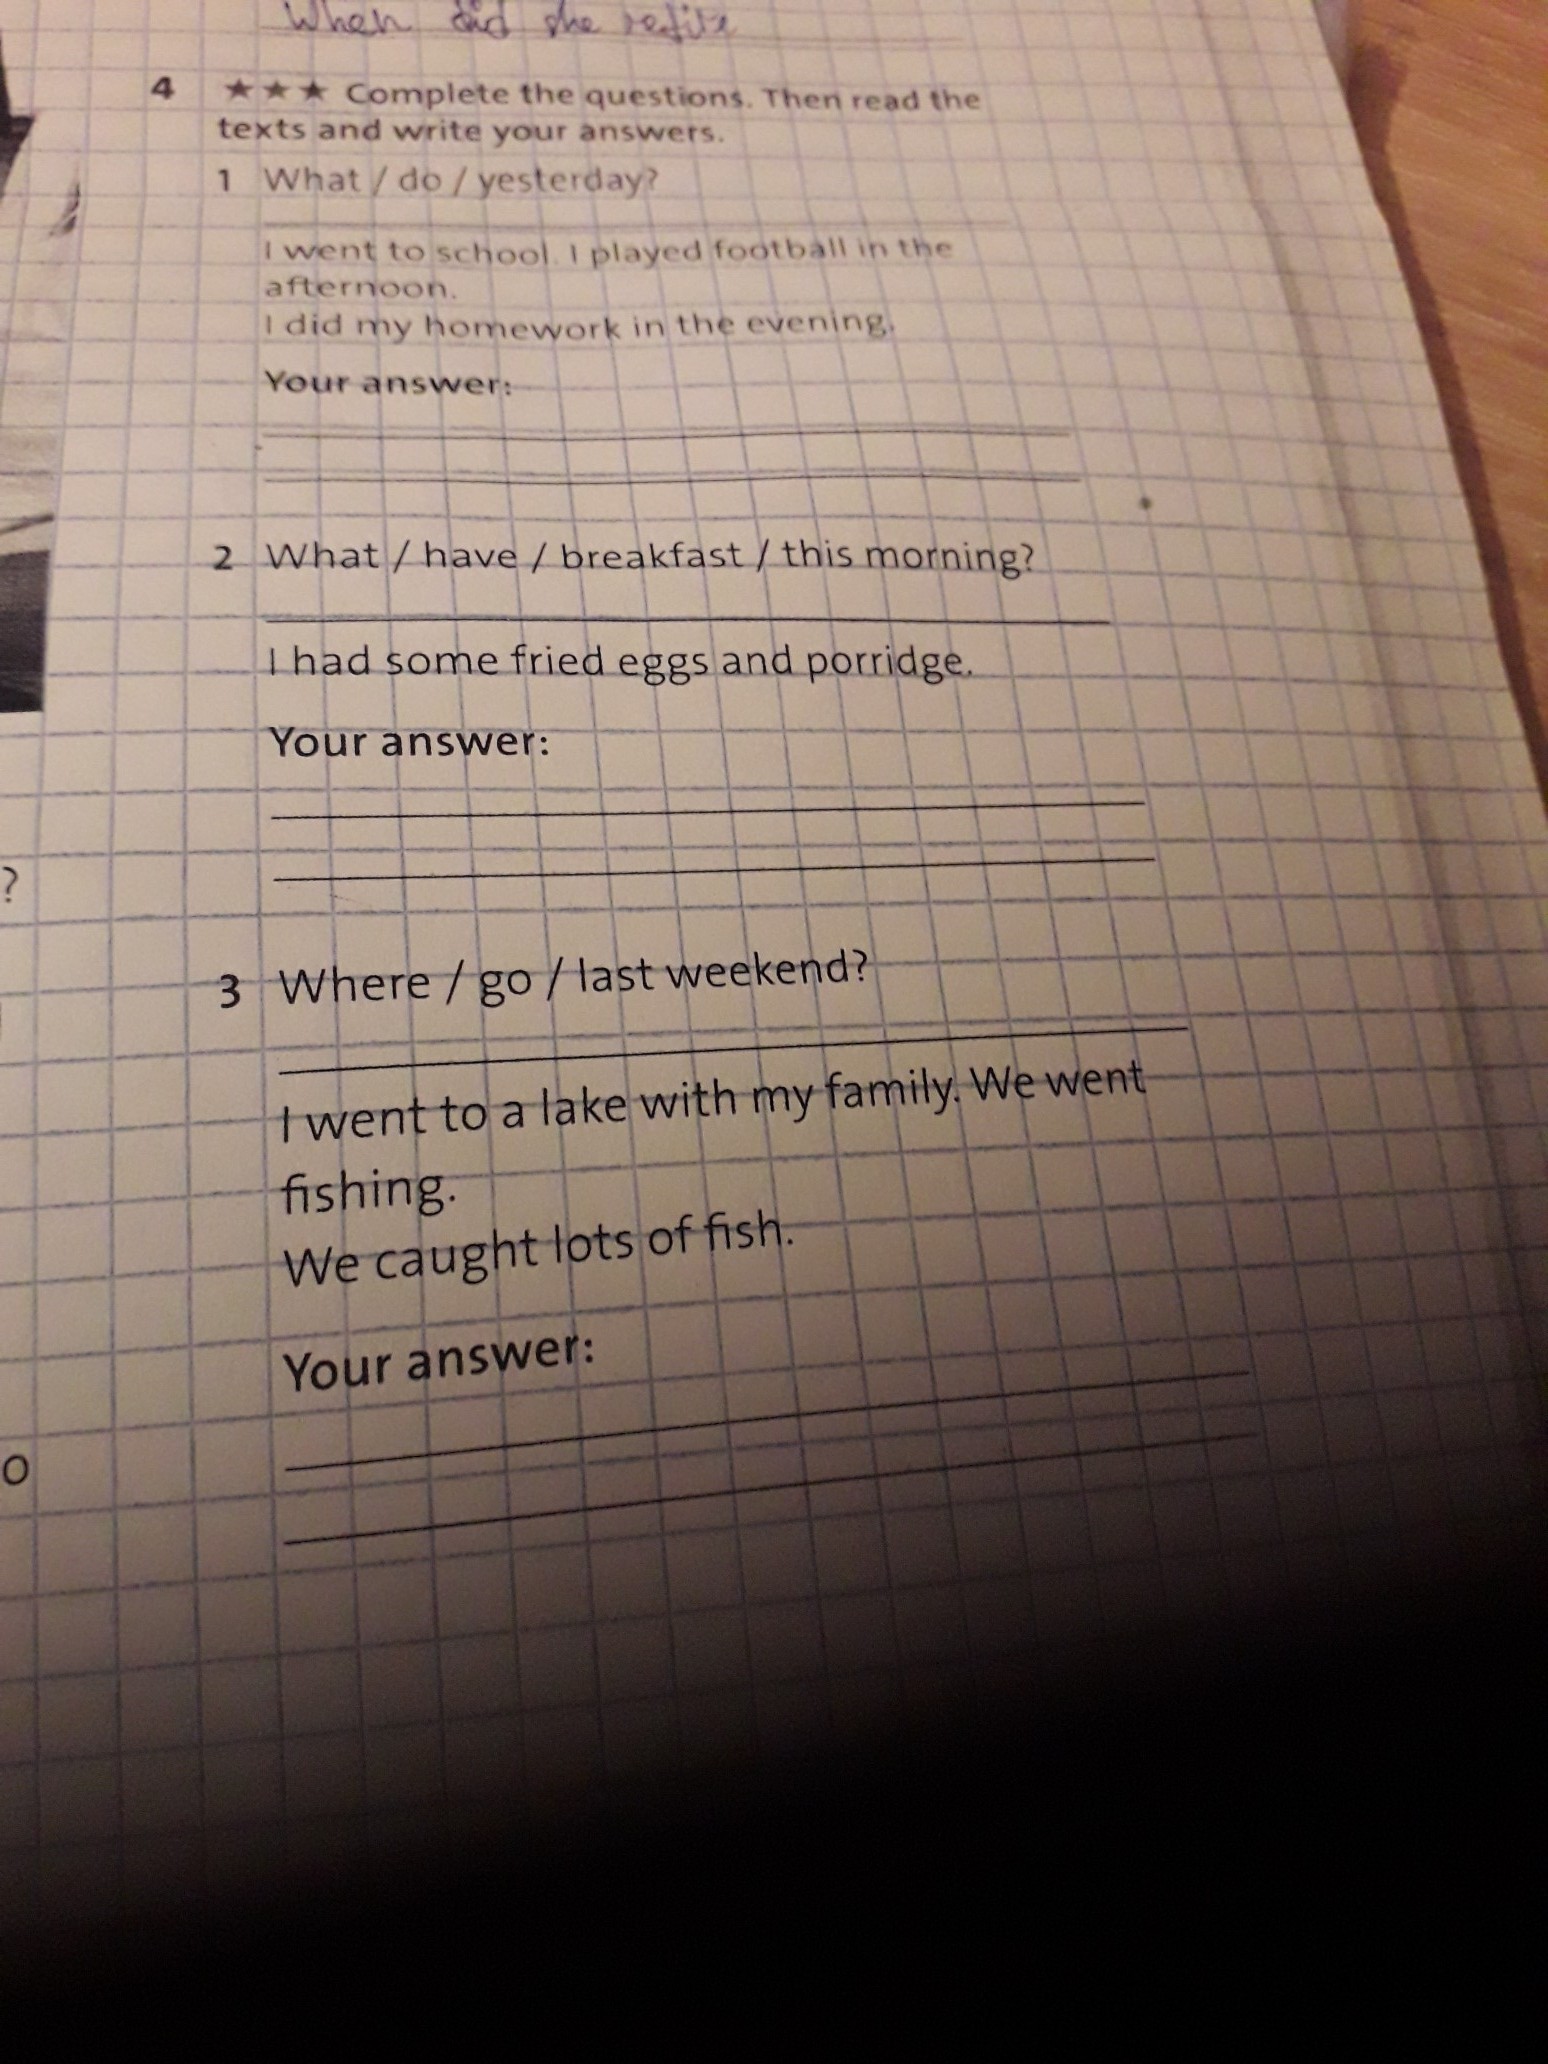 When did she retire
4 ★★★ Complete the questions. Then read the
texts and write your answers.
1 What / do / yesterday?
I went to school. I played football in the
afternoon.
I did my homework in the evening.
Your answer:
2 What / have / breakfast / this morning?
I had some fried eggs and porridge.
Your answer:
?
3 Where / go / last weekend?
I went to a lake with my family. We went
fishing.
We caught lots of fish.
Your answer:
o